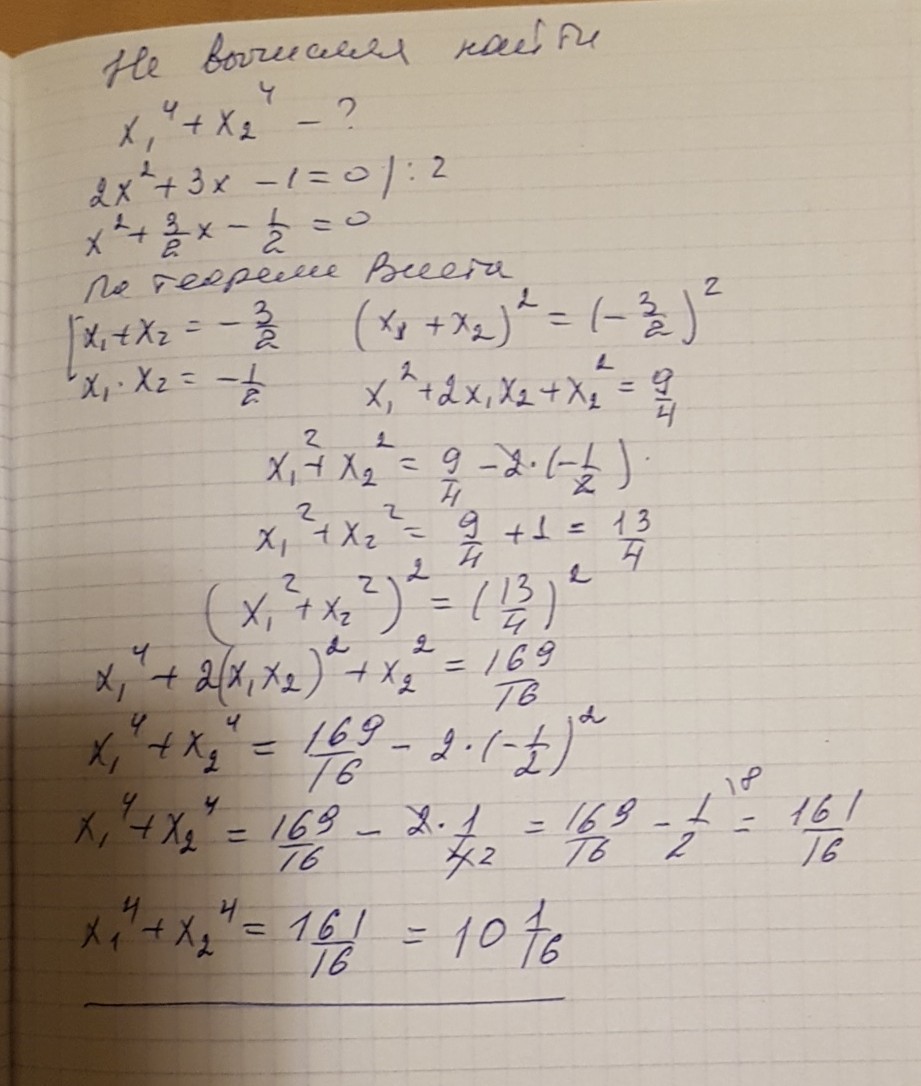 Не вычисляя найти
x₁⁴ + x₂⁴ - ?
2x² + 3x - 1 = 0 | : 2
x² + 3/2 x - 1/2 = 0
По теореме Виета
[x₁ + x₂ = - 3/2 (x₁ + x₂)² = (- 3/2)²
x₁ · x₂ = - 1/2 x₁² + 2x₁x₂ + x₂² = 9/4
x₁² + x₂² = 9/4 - 2 · (- 1/2)
x₁² + x₂² = 9/4 + 1 = 13/4
(x₁² + x₂²)² = (13/4)²
x₁⁴ + 2(x₁x₂)² + x₂² = 169/16
x₁⁴ + x₂⁴ = 169/16 - 2 · (- 1/2)²
x₁⁴ + x₂⁴ = 169/16 - 2 · 1/42 = 169/16 - 1/2 \8 = 161/16
x₁⁴ + x₂⁴ = 161/16 = 10 1/16